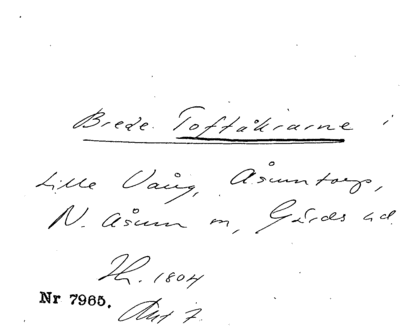 Brede Toftåkrarne i
Lille Vång, Åsumtorp,
N. Åsum sn, Gärds hd.
1804
Nr 7965.
Akt 7.